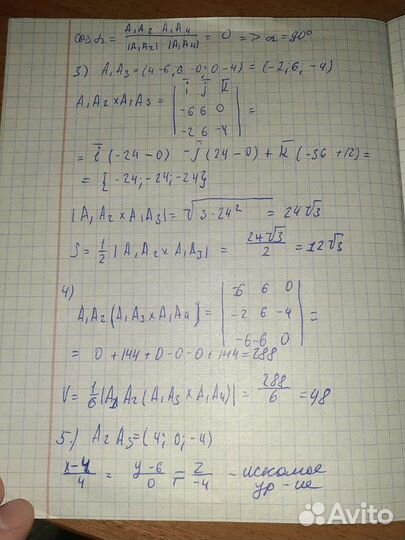 cos α = A₁A₂ · A₁A₄ / |A₁A₂| · |A₁A₄| = 0 => α = 90°
3) A₁A₃ = (4-6, 6-0; 0-4) = (-2, 6, -4)
A₁A₂ × A₁A₃ = | i j k |
| -6 6 0 | =
| -2 6 -4 |
= i (-24-0) - j (24-0) + k (-36+12) =
= {-24; -24; -24}
|A₁A₂ × A₁A₃| = √3·24² = 24√3
S = 1/2 |A₁A₂ × A₁A₃| = 24√3/2 = 12√3
4)
A₁A₂ (A₁A₃ × A₁A₄) = | -6 6 0 |
| -2 6 -4 | =
| -6 -6 0 |
= 0 + 144 + 0 - 0 - 0 + 144 = 288
V = 1/6 |A₁A₂ (A₁A₃ × A₁A₄)| = 288/6 = 48
5.) A₂A₃ = (4; 0; -4)
x-4/4 = y-6/0 = z/-4 - искомое
ур-ие
Avito